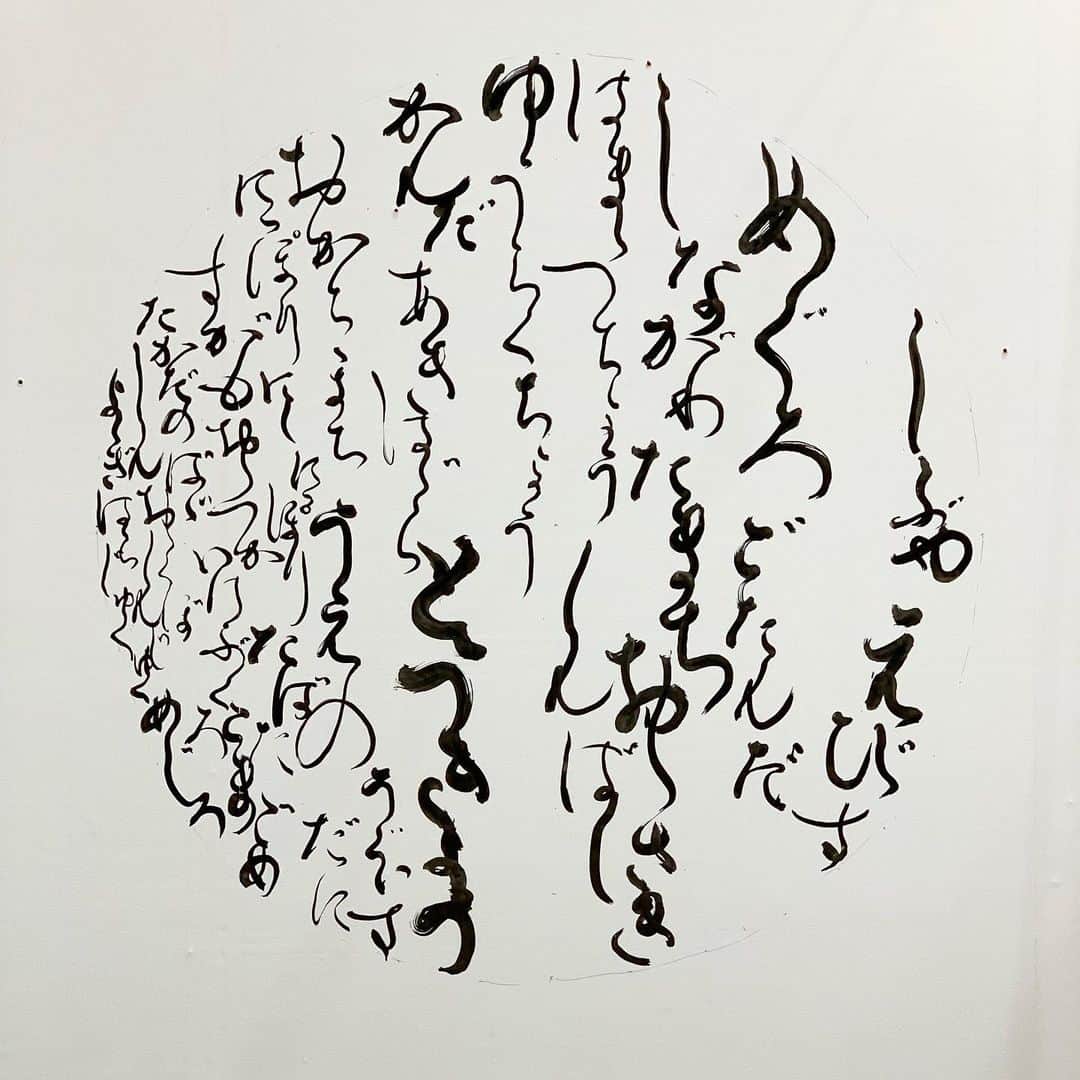 しぶや えびす
めぐろ ごたんだ
しながわ たまち おゝさき
はまゝつちょう しんばし
ゆうらくちょう
かんだ あきはばら とうきょう
おかちまち うえの うぐいすだに
にっぽり にしにっぽり たばた
すがも おゝつか こまごめ
たかだのばば いけぶくろ めじろ
しんおゝくぼ しんじゅく
よゝぎ はらじゅく